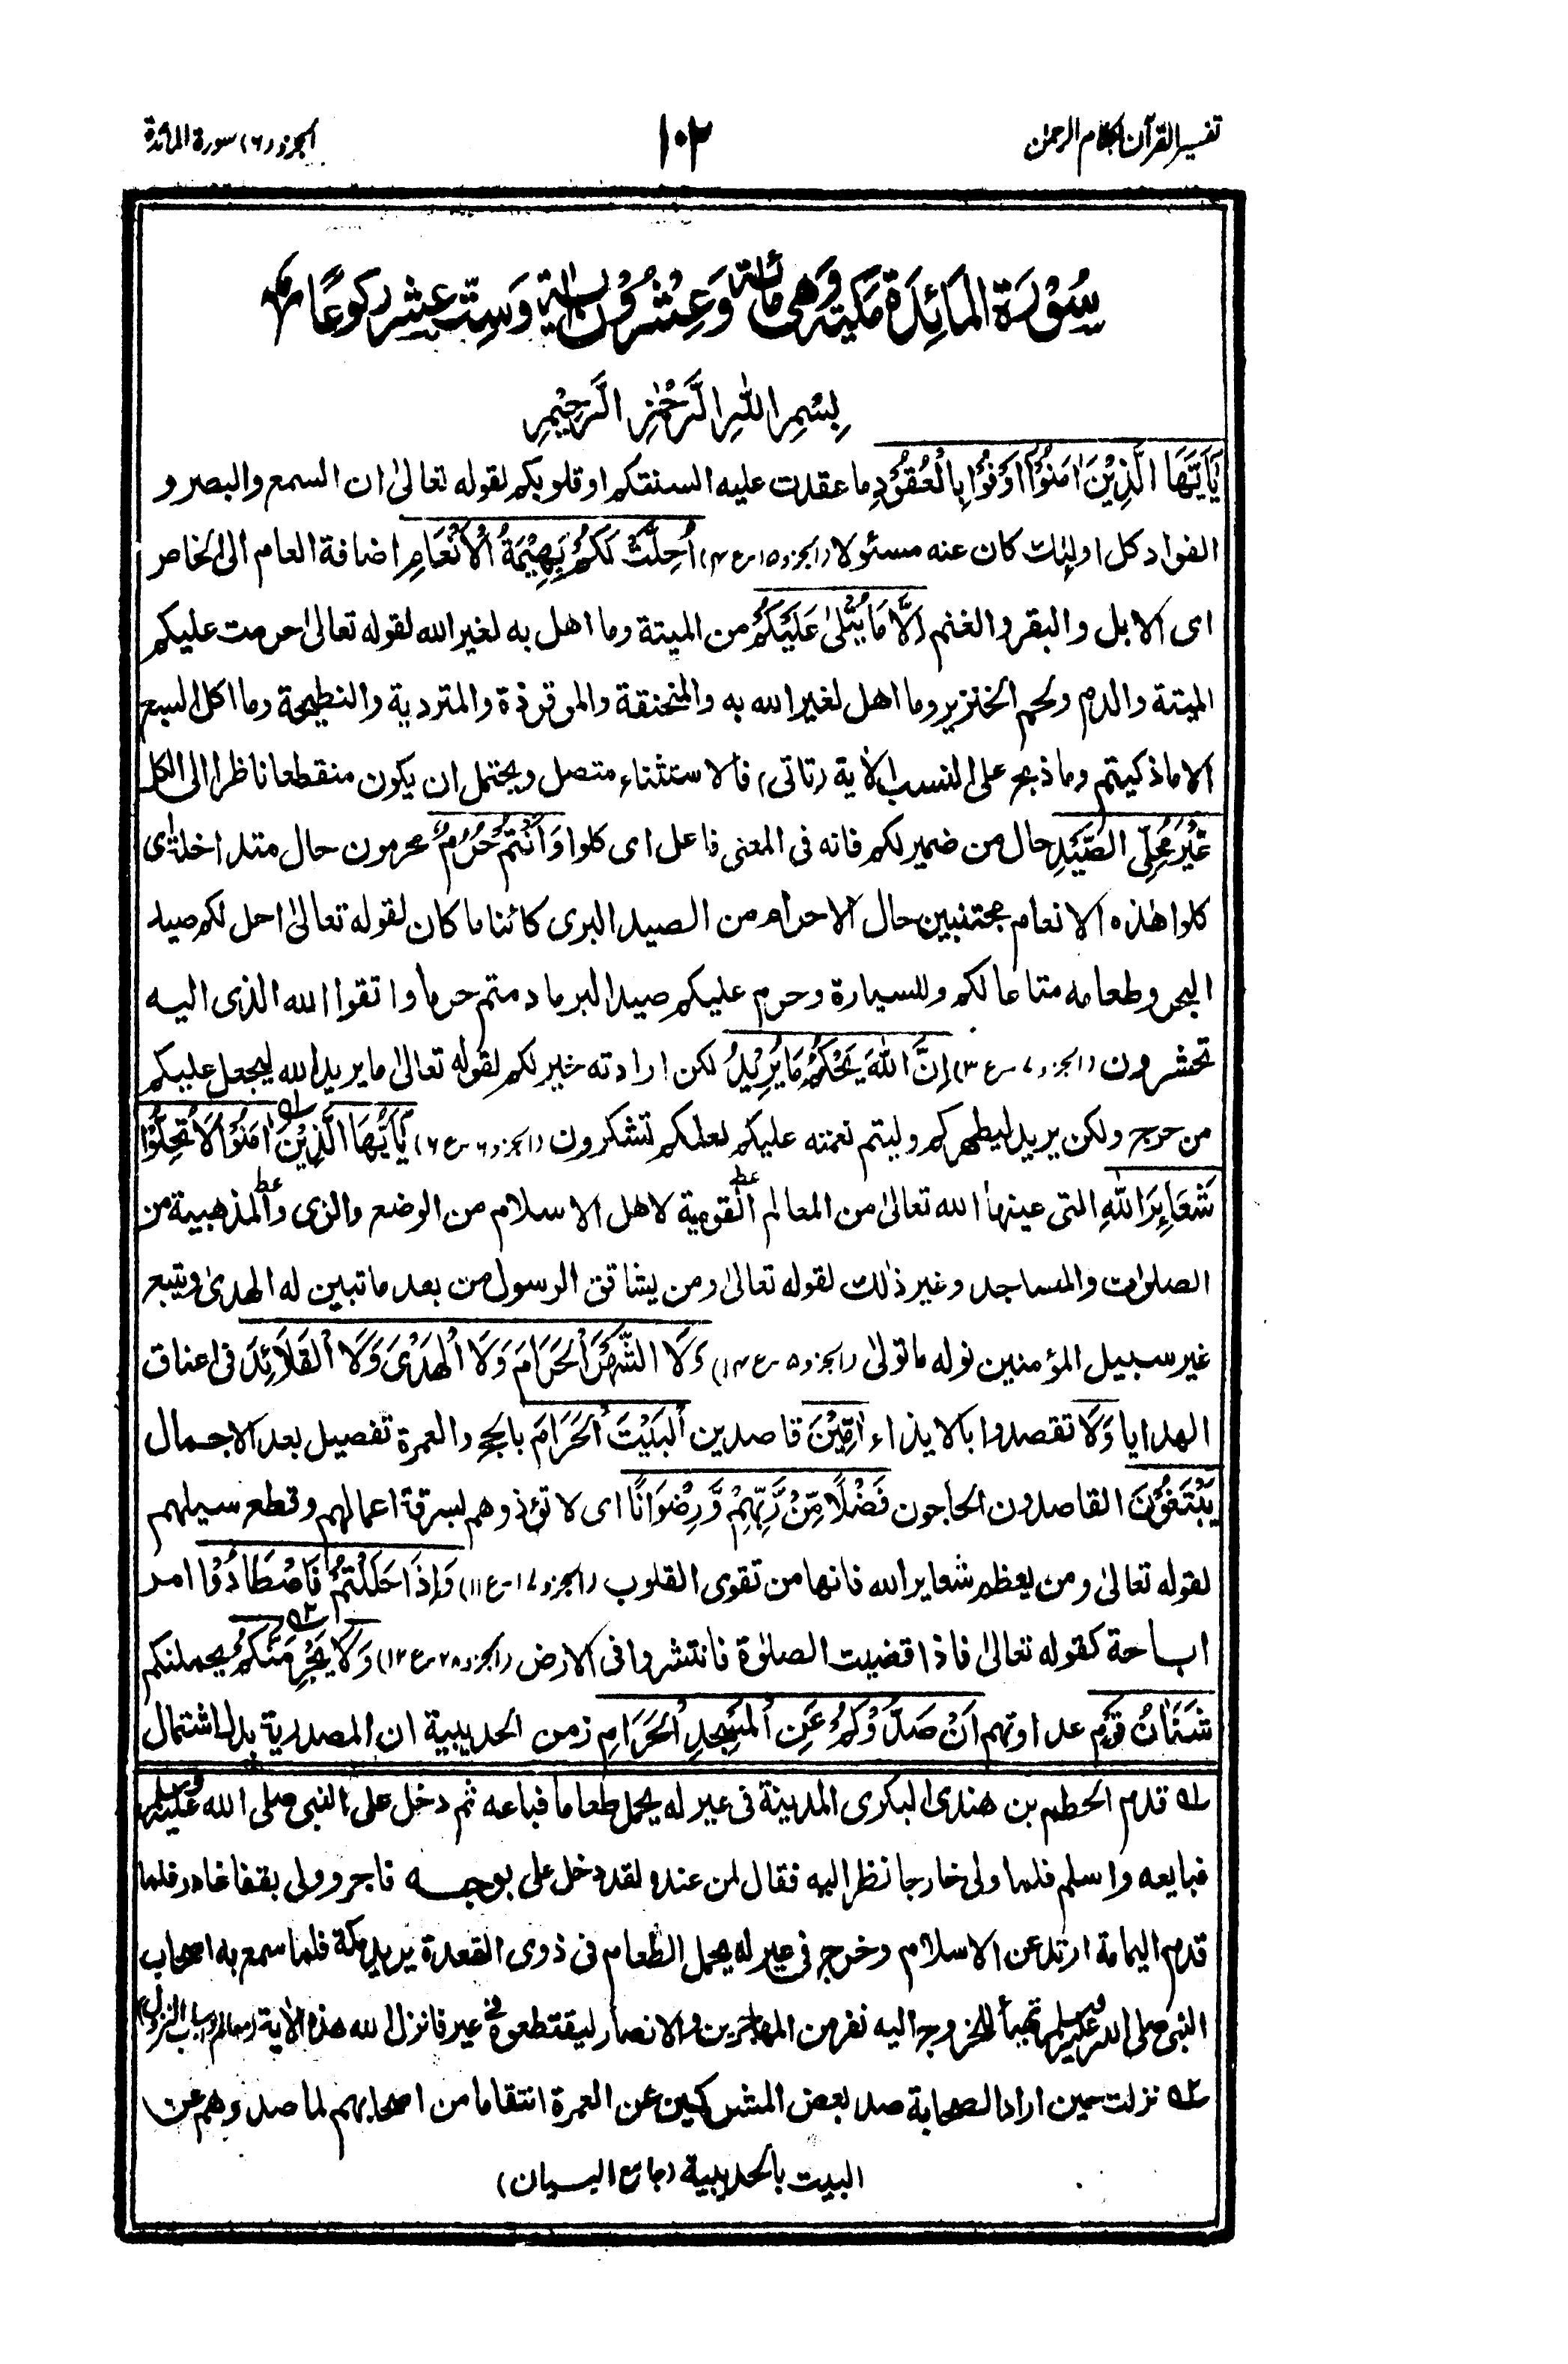 تفسير القرآن بكلام الرحمن
١٠٢
الجزء (٦) سورة المائدة
سُوْرَةُ الْمَائِدَةِ مَكِّيَّة وَهِىَ مائة وَعِشْرُوْنَ اٰية وَسِتّ عشر ركوعًا
بِسْمِ اللهِ الرَّحْمٰنِ الرَّحِيْمِ
يٰٓاَيُّهَا الَّذِيْنَ اٰمَنُوْٓا اَوْفُوْا بِالْعُقُوْدِ ما عقدت عليه السنتكم او قلوبكم لقوله تعالىٰ ان السمع والبصر و
الفواد كل اولٰئك كان عنه مسئولا (الجزو ١٥-ع ٤) اُحِلَّتْ لَكُمْ بَهِيْمَةُ الْاَنْعَامِ اضافة العام الى الخاص
اى الابل والبقر والغنم اِلَّا مَا يُتْلٰى عَلَيْكُمْ من الميتة وما اهل به لغير الله لقوله تعالىٰ حرمت عليكم
الميتة والدم ولحم الخنزير وما اهل لغير الله به والمنخنقة والموقوذة والمتردية والنطيحة وما اكل السبع
الا ما ذكيتم وما ذبح على النصب الاٰية (تاتى) فالاستثناء متصل ويحتمل ان يكون منقطعا ناظرا الى الكل
غَيْرَ مُحِلِّى الصَّيْدِ حال من ضمير لكم فانه فى المعنى فاعل اى كلوا وَاَنْتُمْ حُرُمٌ محرمون حال متداخلة اى
كلوا هٰذه الانعام مجتنبين حال الاحرام من الصيد البرى كائنا ما كان لقوله تعالىٰ احل لكم صيد
البحر وطعامه متاعا لكم وللسيارة وحرم عليكم صيد البر ما دمتم حرما واتقوا الله الذى اليه
تحشرون (الجزو ٧-ع ٣) اِنَّ اللّٰهَ يَحْكُمُ مَا يُرِيْدُ لكن ارادته خير لكم لقوله تعالىٰ ما يريد الله ليجعل عليكم
من حرج ولكن يريد ليطهركم وليتم نعمته عليكم لعلكم تشكرون (الجزو ٦-ع ٦) يٰٓاَيُّهَا الَّذِيْنَ اٰمَنُوْا لَا تُحِلُّوْا
شَعَآئِرَ اللّٰهِ التى عينها الله تعالىٰ من المعالم القومية لاهل الاسلام من الوضع والزى والمذهبية من
الصلوات والمساجد وغير ذٰلك لقوله تعالىٰ ومن يشاقق الرسول من بعد ما تبين له الهدىٰ ويتبع
غير سبيل المؤمنين نوله ما تولىٰ (الجزو ٥-ع ١٤) وَلَا الشَّهْرَ الْحَرَامَ وَلَا الْهَدْىَ وَلَا الْقَلَآئِدَ فى اعناق
الهدايا وَلَا تقصدوا بالايذاء اٰمِّيْنَ قاصدين الْبَيْتَ الْحَرَامَ بالحج والعمرة تفصيل بعد الاجمال
يَبْتَغُوْنَ القاصدون الحاجون فَضْلًا مِّنْ رَّبِّهِمْ وَرِضْوَانًا اى لا تؤذوهم بسرقة اعمالهم وقطع سبيلهم
لقوله تعالىٰ ومن يعظم شعاير الله فانها من تقوى القلوب (الجزو ١٧-ع ١١) وَاِذَا حَلَلْتُمْ فَاصْطَادُوْا امر
اباحة كقوله تعالىٰ فاذا قضيت الصلوٰة فانتشروا فى الارض (الجزو ٢٨-ع ١٢) وَلَا يَجْرِمَنَّكُمْ يحملنكم
شَنَاٰنُ قَوْمٍ عداوتهم اَنْ صَدُّوْكُمْ عَنِ الْمَسْجِدِ الْحَرَامِ زمن الحديبية ان المصدرية بدل اشتمال
ـه١ قدم الحطم بن هندى البكرى المدينة فى عير له يحمل طعاما فباعه ثم دخل على النبى صلى الله عليه وسلم
فبايعه واسلم فلما ولى خارجا نظر اليه فقال لمن عنده لقد دخل على بوجه فاجر وولى بقفا غادر فلما
قدم اليمامة ارتد عن الاسلام وخرج فى عير له يحمل الطعام فى ذوى القعدة يريد مكة فلما سمع به اصحاب
النبى صلى الله عليه وسلم تهيأ للخروج اليه نفر من المهاجرين والانصار ليقتطعوه فى عير فانزل الله هذه الاٰية (معالم واسباب النزول)
ـه٢ نزلت حين اراد الصحابة صد بعض المشركين عن العمرة انتقاما من اصحابهم لما صدوهم عن
البيت بالحديبية (جامع البيان)